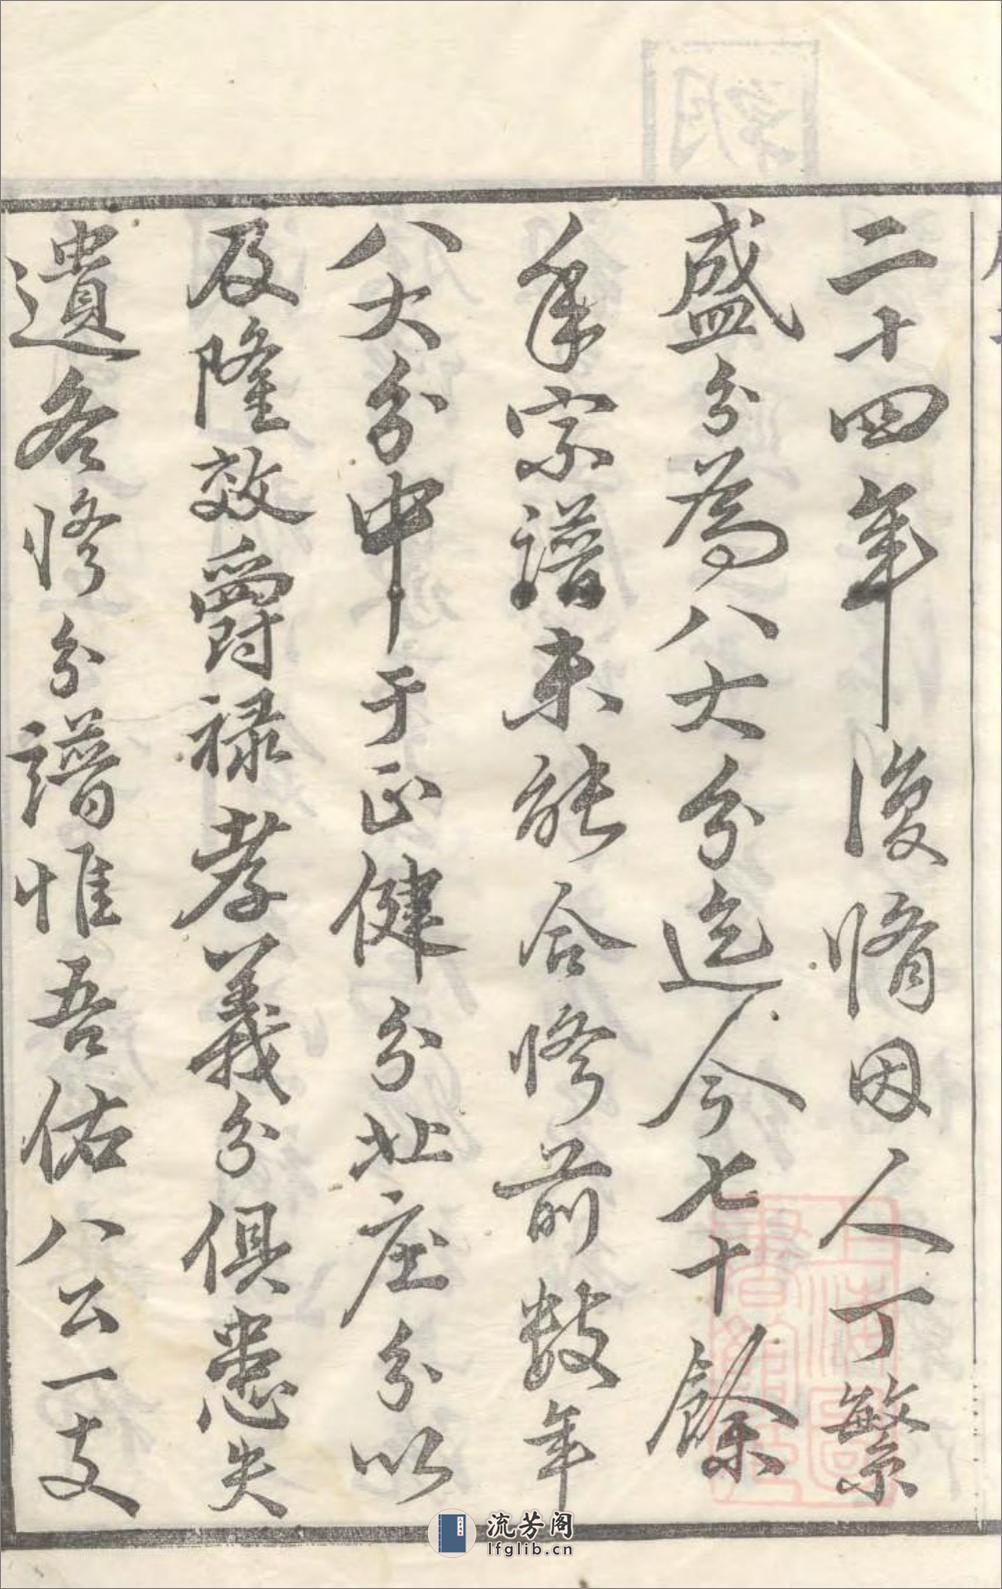 二十四年復脩因人丁繁
盛分為八大分迄今七十餘
年宗譜未能合修前數年
八大分中于正健分北庄分以
及隆效爵祿孝義分俱患失
遺各修分譜惟吾佑八公一支
流芳阁
lfglib.cn